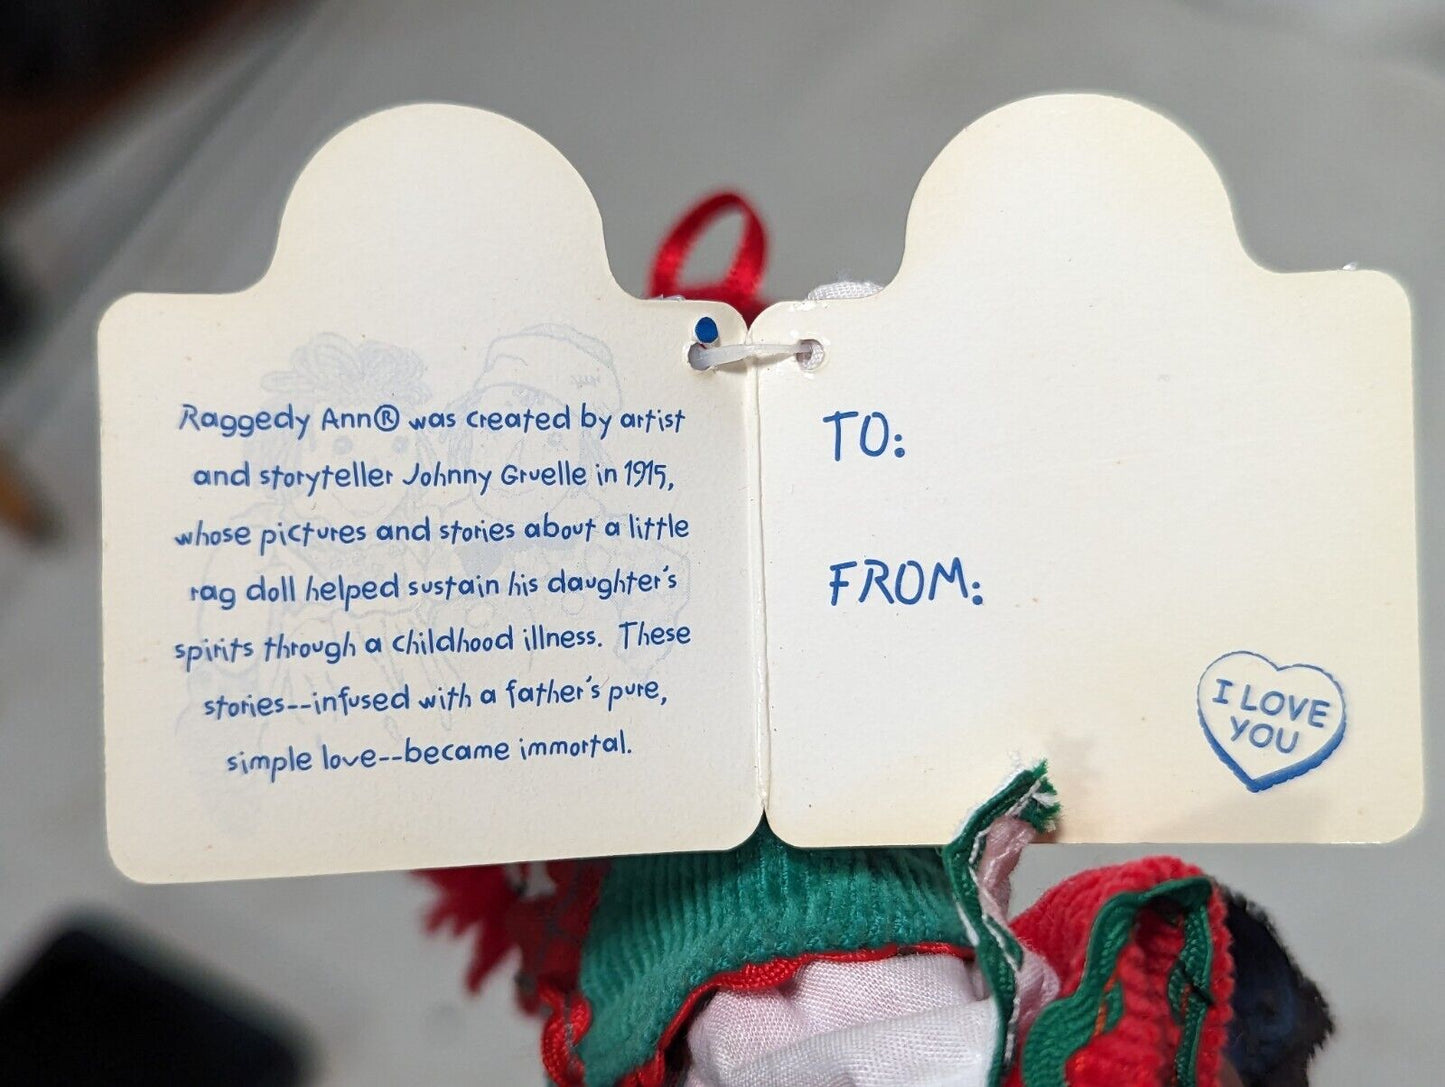 Raggedy Ann® was created by artist
and storyteller Johnny Gruelle in 1915,
whose pictures and stories about a little
rag doll helped sustain his daughter's
spirits through a childhood illness. These
stories--infused with a father's pure,
simple love--became immortal.
TO:
FROM:
I LOVE
YOU